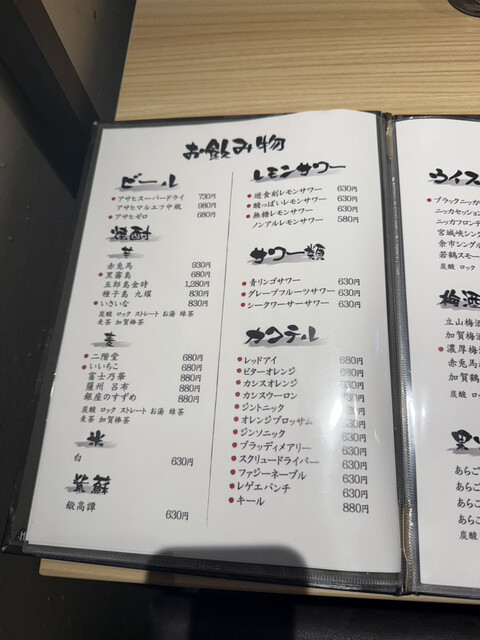 お飲み物
ビール
アサヒスーパードライ 730円
アサヒマルエフ中瓶 980円
アサヒゼロ 680円
焼酎
芋
赤兎馬 930円
黒霧島 680円
五郎島金時 1,280円
種子島 九耀 830円
いさいな 830円
炭酸 ロック ストレート お湯 緑茶
麦茶 加賀棒茶
麦
二階堂 680円
いいちこ 680円
富士乃華 880円
薩州 呂布 880円
銀座のすずめ 880円
炭酸 ロック ストレート お湯 緑茶
麦茶 加賀棒茶
米
白 630円
紫蘇
鍛高譚 630円
レモンサワー
遊食創レモンサワー 630円
酸っぱいレモンサワー 630円
無糖レモンサワー 630円
ノンアルレモンサワー 580円
サワー類
青リンゴサワー 630円
グレープフルーツサワー 630円
シークワーサーサワー 630円
カクテル
レッドアイ 680円
ビターオレンジ 680円
カシスオレンジ
カシスウーロン
ジントニック
オレンジブロッサム
ジンソニック
ブラッディメアリー
スクリュードライバー 630円
ファジーネーブル 630円
レゲエパンチ 630円
キール 880円
ウイス
ブラックニッカ
ニッカセッション
ニッカフロンテ
宮城峡シング
余市シングル
若鶴スモー
炭酸 ロック
梅酒
立山梅酒
加賀梅酒
濃厚梅酒
赤兎馬
加賀鶴
炭酸 ロ
あらご
あらご
あらご
あらご
炭酸